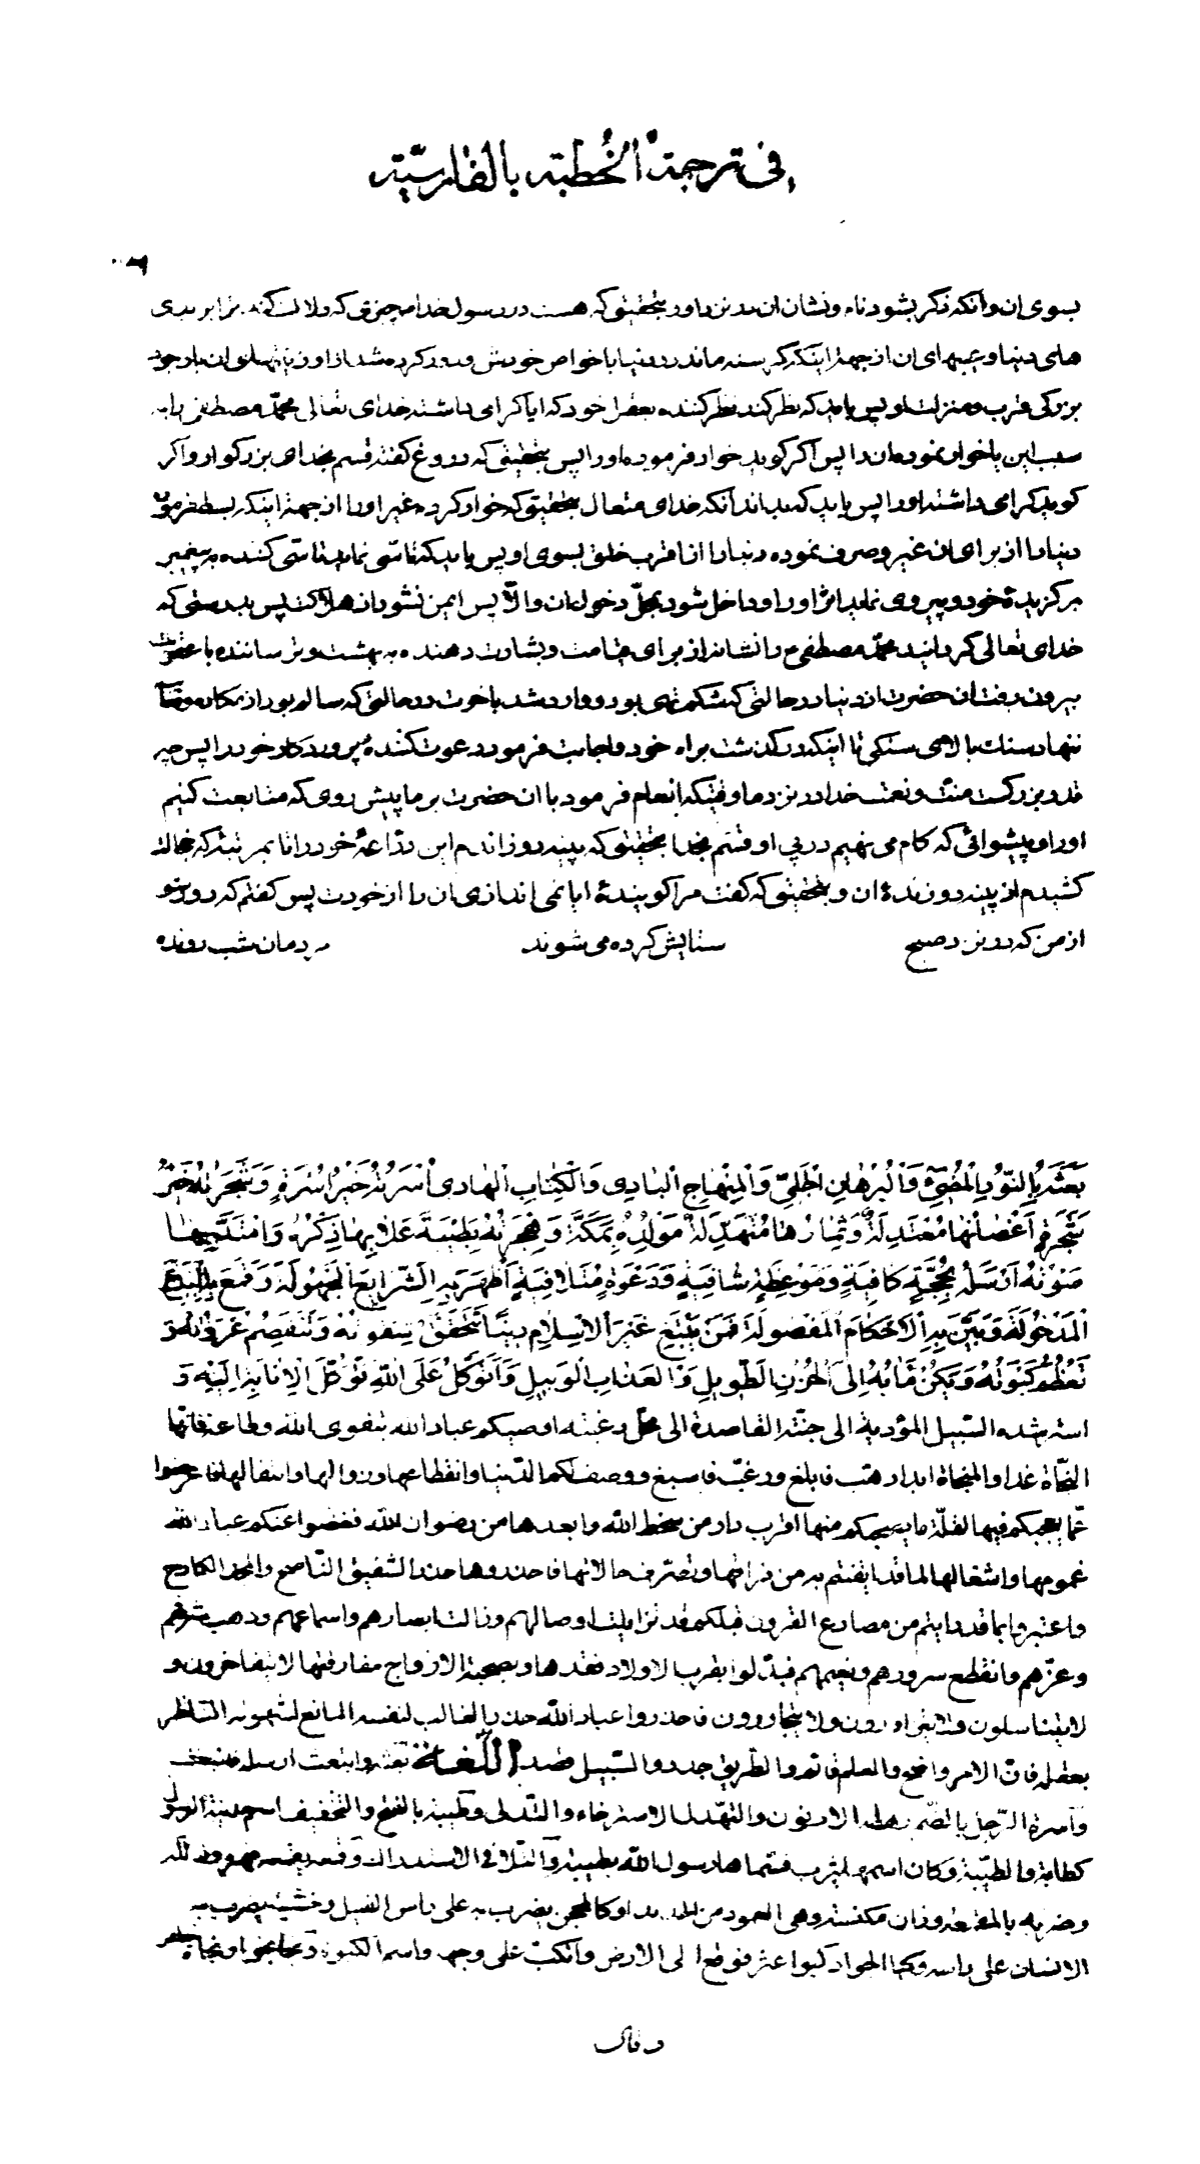 فی ترجمة الخطبة بالفارسیّة
بسوی ان وانکه ذکر بشود نام ونشان ان در نزد او وبتحقیق که هست در رسول خدا چیزی که دلالت کند ترا بر بدی
های دنیا وعیبهای ان از جهة اینکه کرسنه ماند در دنیا با خواص خودش ودور کرده شد از او زینتهای ان با وجود
بزرکی قرب ومنزلت او پس باید که نظر کند نظر کننده بعقل خود که ایا کرامی داشته خدای تعالی محمّد مصطفی را به
سبب این یا خوار نموده ان را پس اکر کوید خوار فرموده او را پس بتحقیق که دروغ کفته قسم بخدای بزرکوار واکر
کوید کرامی داشته او را پس باید که بداند انکه خدای متعال بتحقیق که خوار کرده غیر او را از جهة اینکه بسط فرموده
دنیا را از برای ان غیر وصرف نموده دنیا را از اقرب خلق بسوی او پس باید که تاسّی نماید تاسّی کننده به پیغمبر
برکزیدهٔ خود وپیروی نماید اثر او را وداخل شود بمحلّ دخول ان والّا پس ایمن نشود از هلاکت پس بدرستی که
خدای تعالی کردانید محمّد مصطفی را نشانه از برای قیامت وبشارت دهنده به بهشت وترساننده با عقوبت
بیرون رفت ان حضرت از دنیا در حالتی که شکم تهی بود ووارد شد باخرت در حالتی که سالم بود از مکاره
ننهاد سنك بالای سنکی تا اینکه درکذشت براه خود واجابت فرمود دعوت کنندهٔ پروردکار خود را پس چه
قدر بزرکست منّت ونعمت خدا در نزد ما وقتیکه انعام فرمود با ان حضرت بر ما پیش روی که متابعت کنیم
او را وپیشوائی که کام می نهیم در پی او قسم بخدا بتحقیق که پینه دوزاندم این درّاعهٔ خود را تا بمرتبهٔ که خجالت
کشیدم از پینه دوزندهٔ ان وبتحقیق که کفت مرا کویندهٔ ایا نمی اندازی ان را از خودت پس کفتم که دور شو
از من که در نزد صبح ستایش کرده می شوند مردمان شب رونده
بَعَثَهُ بِالنُّورِ الْمُضِیءِ وَالْبُرْهانِ الْجَلِیِّ وَالْمِنْهاجِ الْبادِی وَالْکِتابِ الْهادِی اُسْرَتُهُ خَیْرُ اُسْرَةٍ وَشَجَرَتُهُ خَیْرُ
شَجَرَةٍ اَغْصانُها مُعْتَدِلَةٌ وَثِمارُها مُتَهَدِّلَةٌ مَوْلِدُهُ بِمَکَّةَ وَهِجْرَتُهُ بِطَیْبَةَ عَلا بِها ذِکْرُهُ وَامْتَدَّ بِها
صَوْتُهُ اَرْسَلَهُ بِحُجَّةٍ کافِیَةٍ وَمَوْعِظَةٍ شافِیَةٍ وَدَعْوَةٍ مُتَلافِیَةٍ اَظْهَرَ بِهِ الشَّرایِعَ الْمَجْهُولَةَ وَقَمَعَ بِهِ الْبِدَعَ
الْمَدْخُولَةَ وَبَیَّنَ بِهِ الْاَحْکامَ الْمَفْصُولَةَ فَمَنْ یَبْتَغِ غَیْرَ الْاِسْلامِ دِینًا تَتَحَقَّقْ شِقْوَتُهُ وَتَنْفَصِمْ عُرْوَتُهُ وَ
تَعْظُمْ کَبْوَتُهُ وَیَکُنْ مَابُهُ اِلَی الْحُزْنِ الطَّوِیلِ وَالْعَذابِ الْوَبِیلِ وَاَتَوَکَّلُ عَلَی اللهِ تَوَکُّلَ الْاِنابَةِ اِلَیْهِ وَ
استرشده السّبیل المؤدّیة الی جنّته القاصدة الی محلّ رغبته اوصیکم عباد الله بتقوی الله وطاعته فانّها
النّجاة غدا والمنجاة ابدا رهّب فابلغ ورغّب فاسبغ ووصف لکم الدّنیا وانقطاعها وزوالها وانتقالها فاعرضوا
عمّا یعجبکم فیها لقلّة ما یصحبکم منها اقرب دار من سخط الله وابعدها من رضوان الله فغضّوا عنکم عباد الله
غمومها واشغالها لما قد ایقنتم به من فراقها وتصرّف حالاتها فاحذروها حذر الشّفیق النّاصح والمجدّ الکادح
واعتبروا بما قد رایتم من مصارع القرون قبلکم قد تزایلت اوصالهم وزالت ابصارهم واسماعهم وذهب شرفهم
وعزّهم وانقطع سرورهم ونعیمهم فبدّلوا بقرب الاولاد فقدها وبصحبة الازواج مفارقتها لا یتفاخرون و
لا یتناسلون ولا یتزاورون ولا یتجاورون فاحذروا عباد الله حذر الغالب لنفسه المانع لشهوته النّاظر
بعقله فانّ الامر واضح والعلم قائم والطّریق جدد والسّبیل قصد اللّغة بعثه وابتعث ارسله فانبعث
واسرة الرّجل بالضّم رهطه الادنون والتّهدل الاسترخاء والتّدلی وطیبة بالفتح والتّخفیف اسم مدینة الرسول
کطابة والطیّبة وکان اسمها یثرب فسمّاها رسول الله بطیبة والتّلافی الاستدراك وقمعه یقمعه قهره وذلّله
وضربه بالمقمعة وزان مکنسة وهی العمود من الحدید او کالمحجن یضرب به علی راس الفیل وخشبة یضرب به
الانسان علی راسه وکبا الجواد کبوا عثر فوقع الی الارض وانکبّ علی وجهه واسم الکبوة ونجا ینجو نجاة
وقال